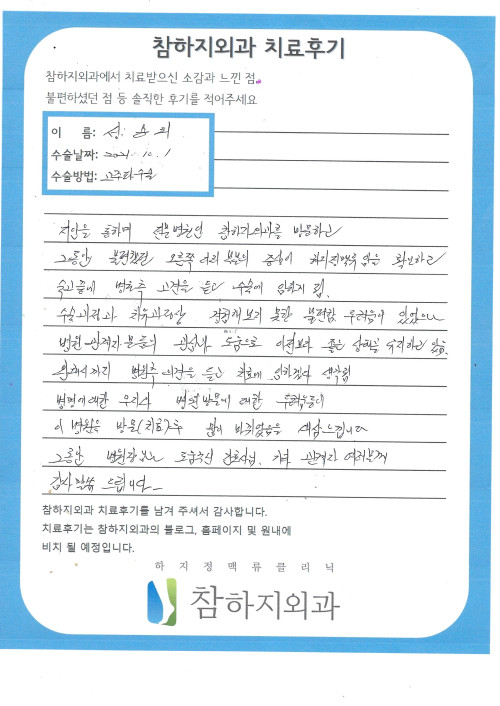 참하지외과 치료후기
참하지외과에서 치료받으신 소감과 느낀 점
불편하셨던 점 등 솔직한 후기를 적어주세요
이 름: 성. 순 희
수술날짜: 2021. 10. 1
수술방법: 고주파수술
지인을 통하여 전문병원인 참하지외과를 방문하고
그동안 불편했던 오른쪽 다리 부분의 증상이 하지정맥류임을 확인하고
숙고끝에 병원측 고견을 듣고 수술에 임하게 됨.
수술과정과 치유과정상 경험해보지 못한 불편함 두려움이 있었으나
병원 관계자 분들의 관심과 도움으로 이전보다 좋은 상태를 유지하고 있음.
완쾌까지 병원측 의견을 듣고 치료에 임하겠다 생각됨
병명에 대한 우려와 병원방문에 대한 두려움등이
이 병원을 방문(치료)후 많이 바뀌었음을 새삼느낍니다
그동안 병원장님과 도움주신 간호사님. 기타 관계자 여러분께
감사말씀 드립니다.
참하지외과 치료후기를 남겨 주셔서 감사합니다.
치료후기는 참하지외과의 블로그, 홈페이지 및 원내에
비치 될 예정입니다.
하지정맥류클리닉
참하지외과